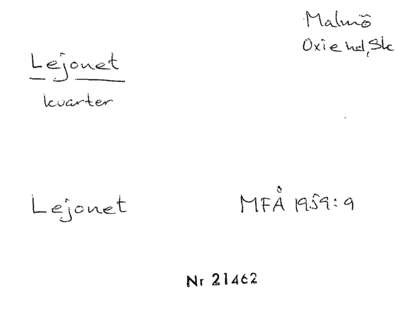 Malmö
Oxie hd, Sk
Lejonet
kvarter
Lejonet MFÅ 1959:9
Nr 21462